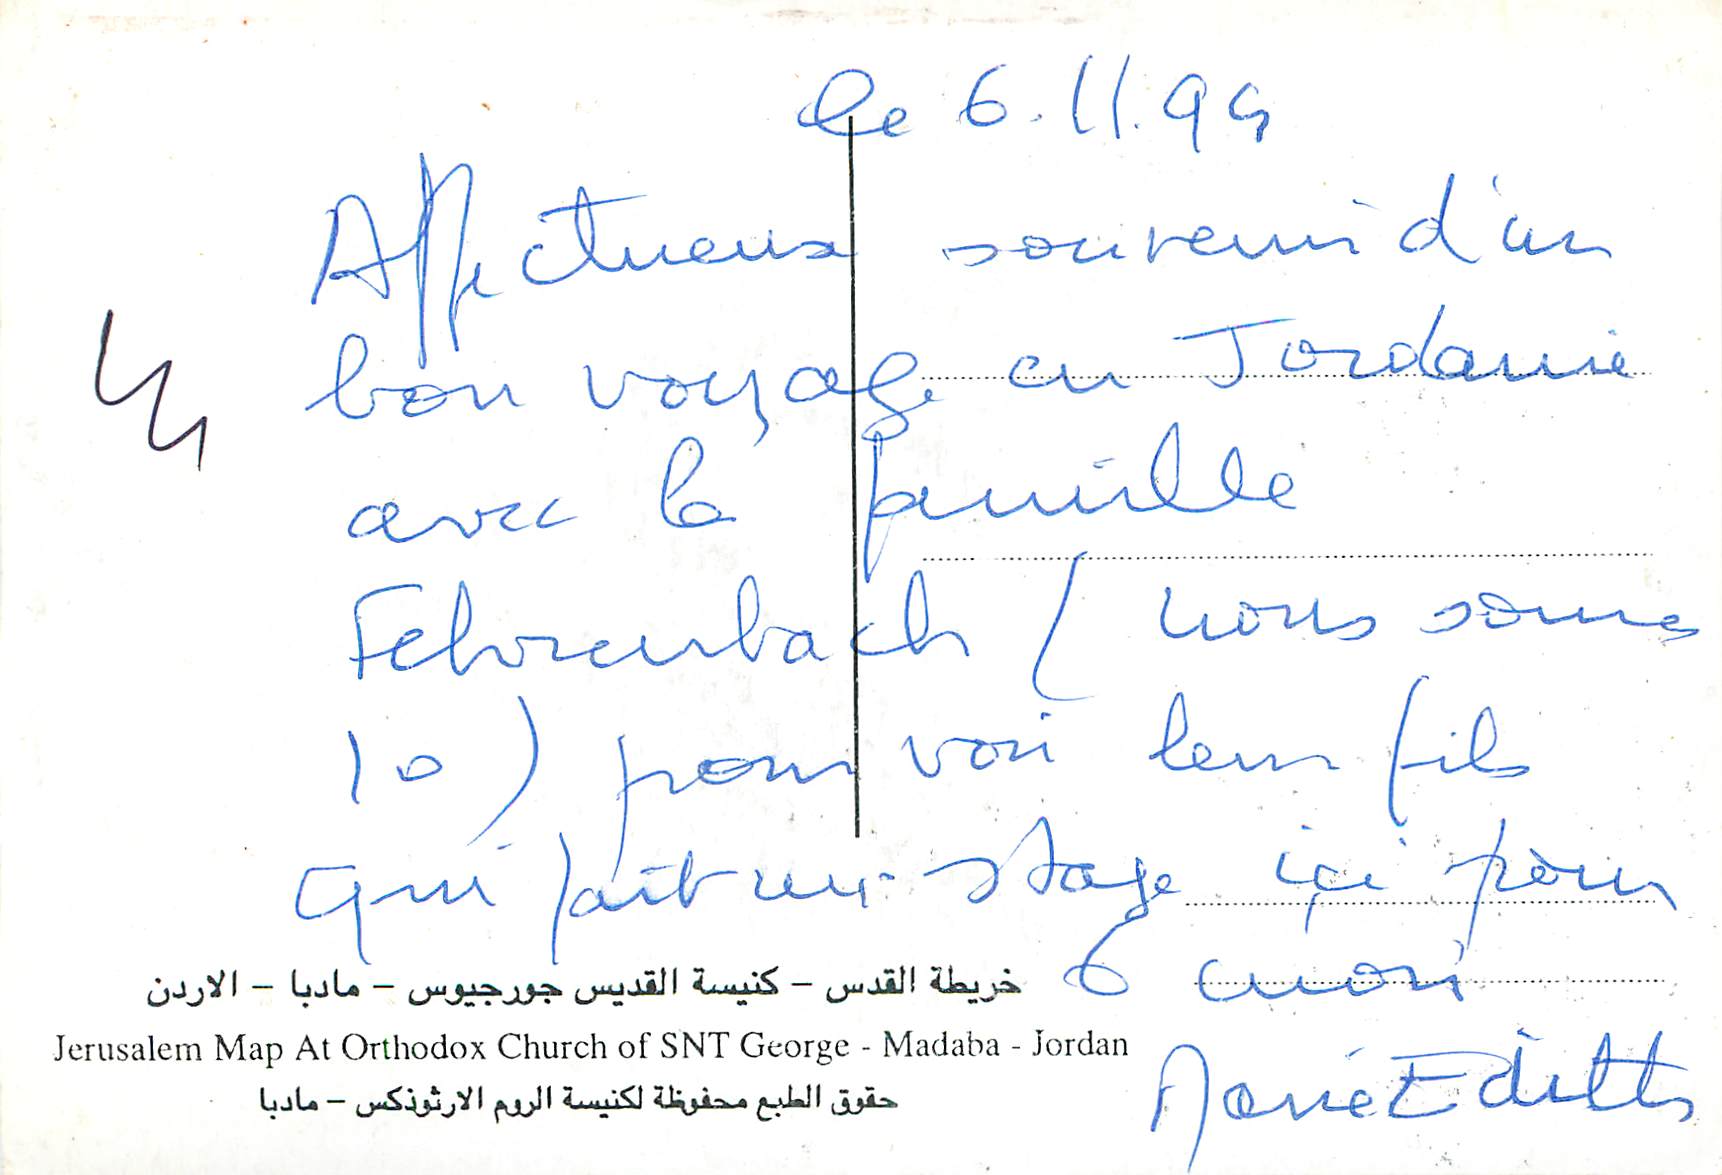 le 6.11.94
Affectueux souvenir d'un
bon voyage en Jordanie
avec la famille
Fehrenbach (nous sommes
10) pour voir leur fils
qui fait un stage içi pour
6 mois
Marie Edith
خريطة القدس – كنيسة القديس جورجيوس – مادبا – الاردن
Jerusalem Map At Orthodox Church of SNT George - Madaba - Jordan
حقوق الطبع محفوظة لكنيسة الروم الارثوذكس – مادبا